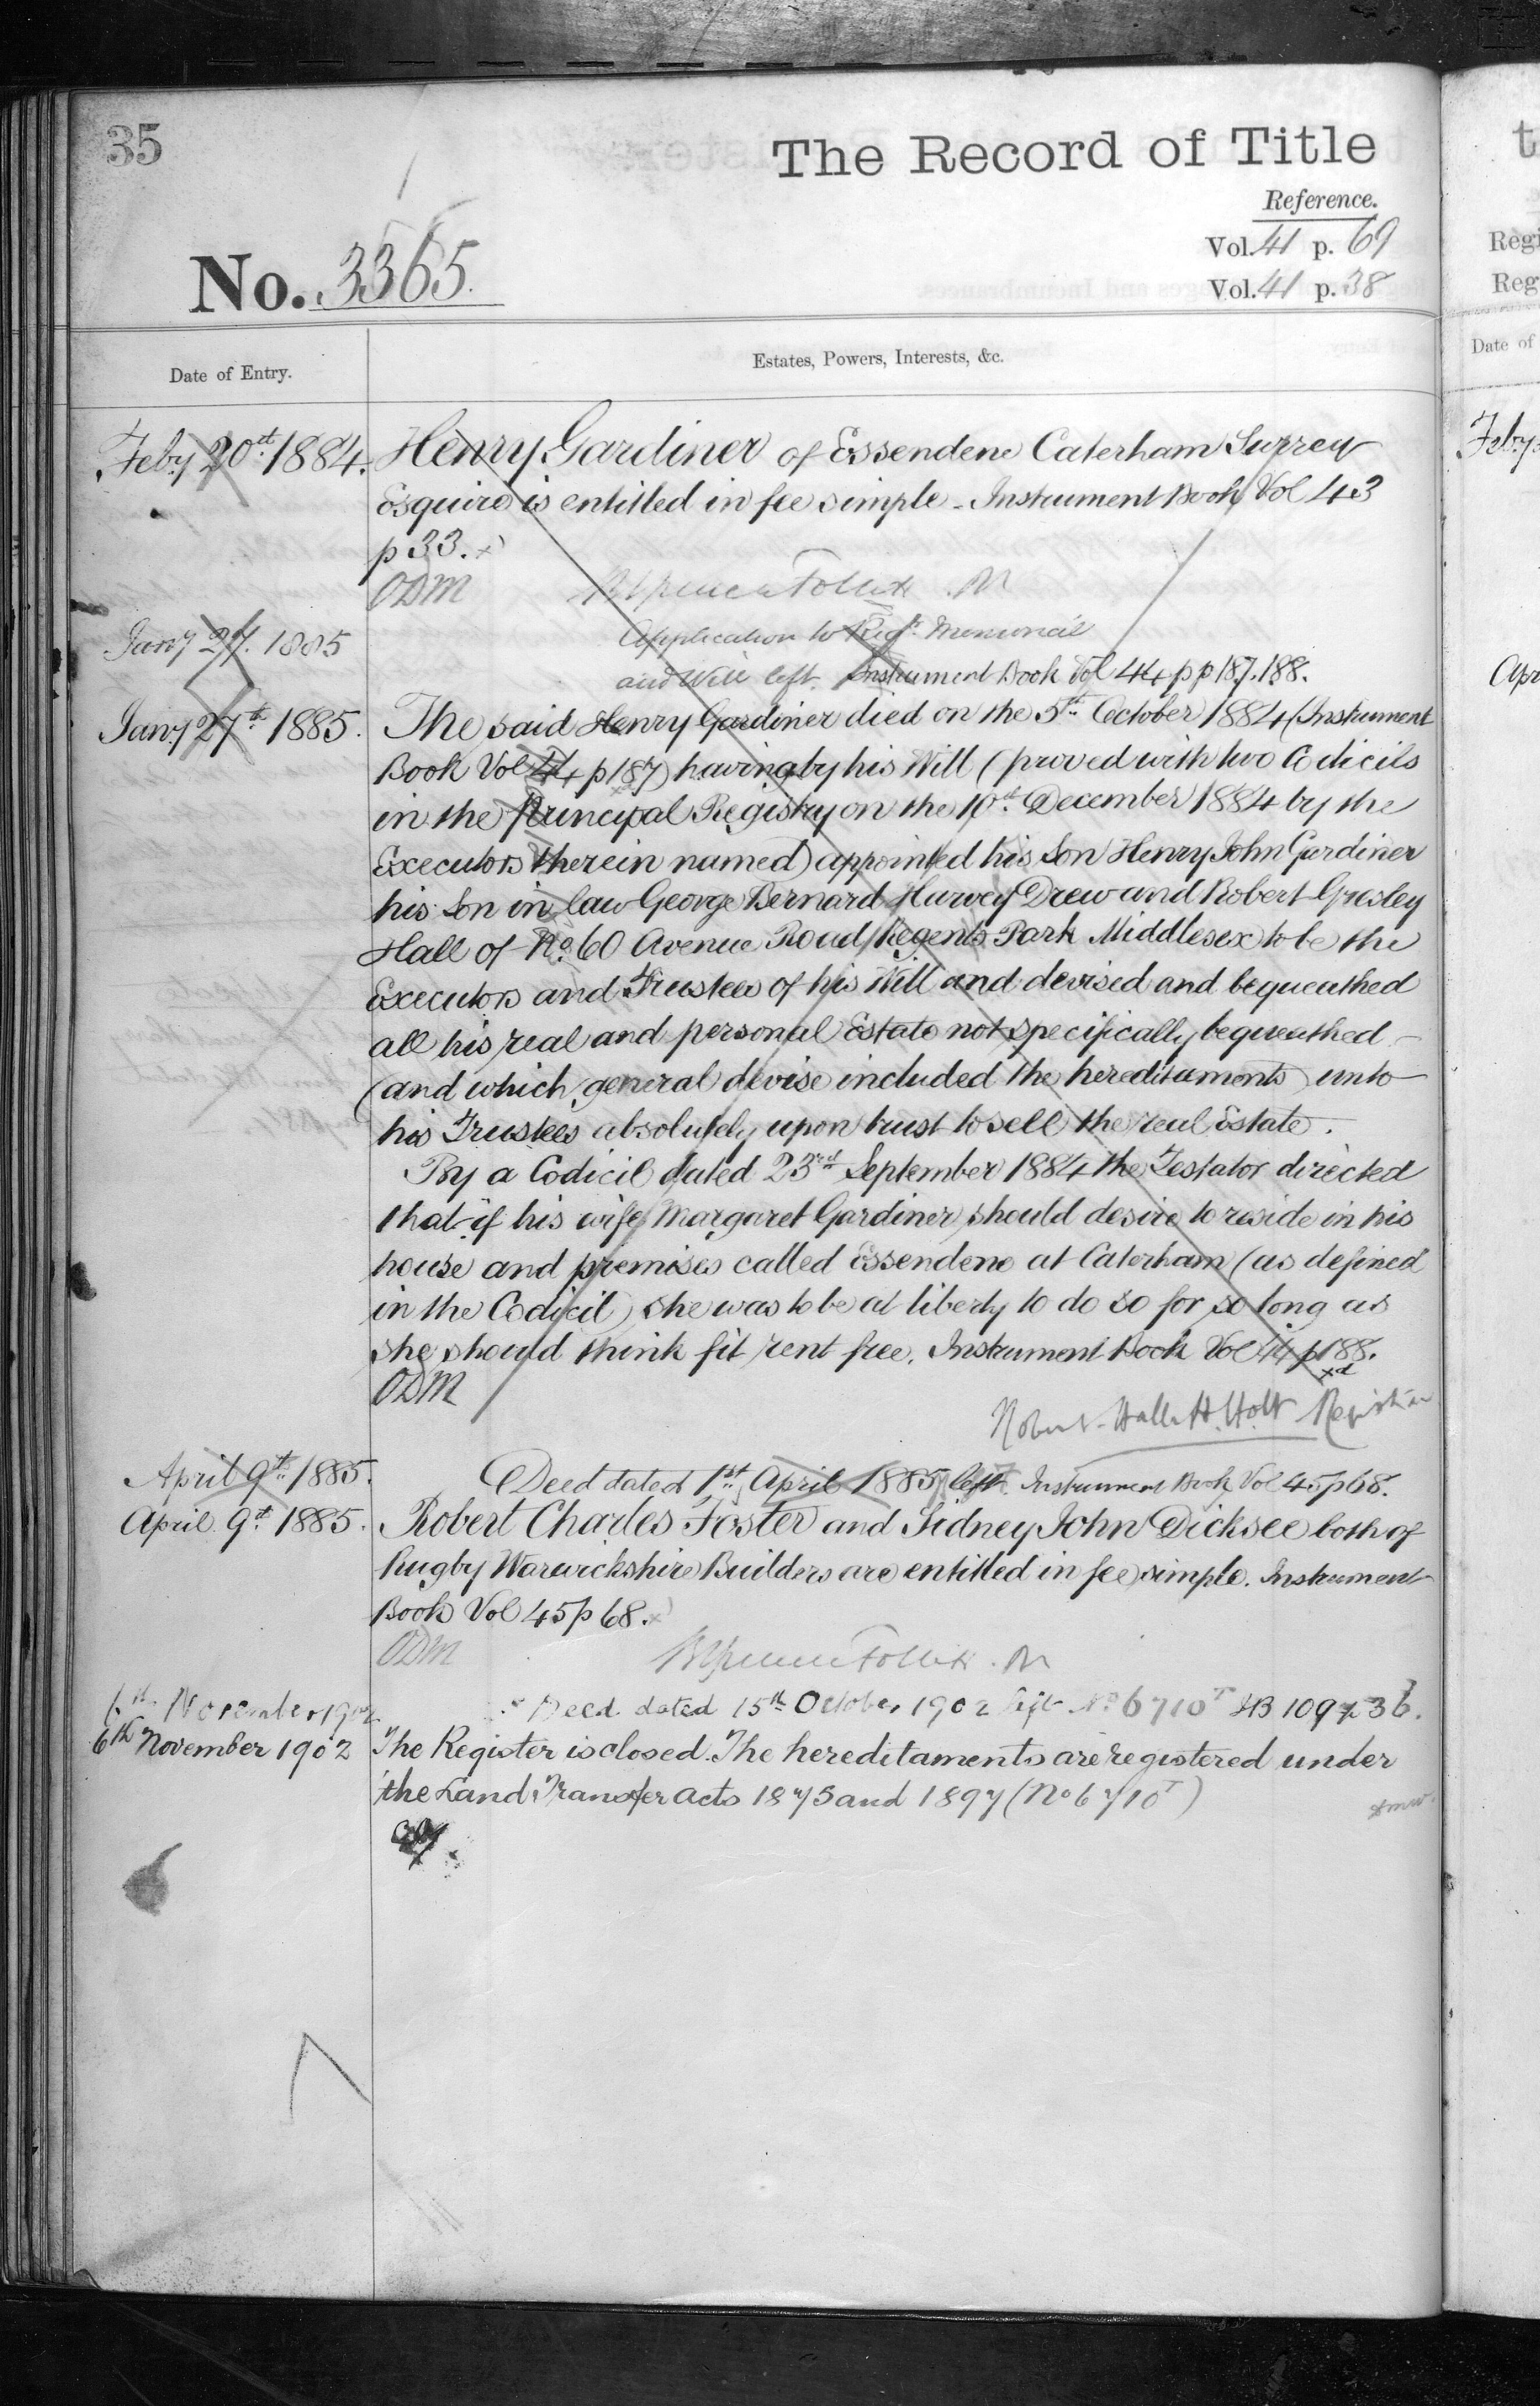 35
The Record of Title
Reference.
Vol. 41 p. 69
No. 3365.
Vol. 41 p. 38
Date of Entry.
Estates, Powers, Interests, &c.
Feby 20th 1884. Henry Gardiner of Essendene Caterham Surrey
Esquire is entitled in fee simple - Instrument Book Vol 43
p 33. x
ODM
Jany 27. 1885 Application to Regr. Memorial
and Will left. Instrument Book Vol 44 pp 187.188.
Jany 27th 1885. The said Henry Gardiner died on the 5th October 1884 (Instrument
Book Vol 44 p 187) having by his Will (proved with two Codicils
in the Principal Registry on the 10th December 1884 by the
Executors therein named) appointed his Son Henry John Gardiner
his Son in law George Bernard Harvey Drew and Robert Gresley
Hall of No. 60 Avenue Road Regents Park Middlesex to be the
Executors and Trustees of his Will and devised and bequeathed
all his real and personal Estate not specifically bequeathed -
(and which general devise included the hereditaments) unto
his Trustees absolutely upon trust to sell the real Estate.
By a Codicil dated 23rd September 1884 the Testator directed
that if his wife Margaret Gardiner should desire to reside in his
house and premises called Essendene at Caterham (as defined
in the Codicil) she was to be at liberty to do so for so long as
she should think fit rent free. Instrument Book Vol 44 p 188.
xd
ODM
Robert Hallett Holt Registrar
April 9th 1885. Deed dated 1st April 1885 left. Instrument Book Vol 45 p 68.
April 9th 1885. Robert Charles Foster and Sidney John Dicksee both of
Rugby Warwickshire Builders are entitled in fee simple. Instrument
Book Vol 45 p 68. x
ODM
6th November 1902 Deed dated 15th October 1902 left No 6710T IB 109 p 36.
6th November 1902 The Register is closed. The hereditaments are registered under
the Land Transfer Acts 1875 and 1897 (No 6710T)
Date of